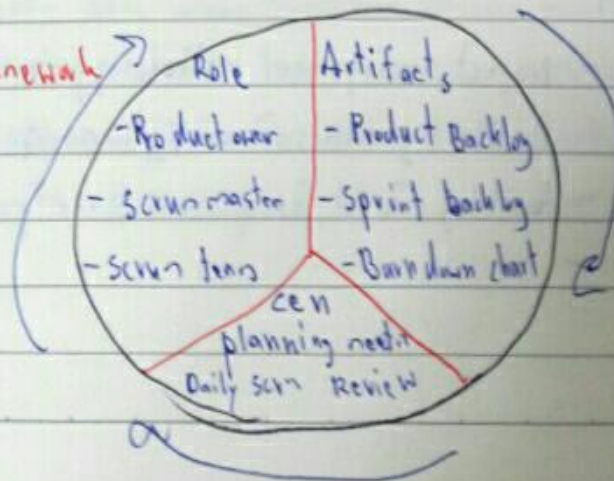 nework
Role
- Product owner
- Scrum master
- Scrum team
Artifacts
- Product Backlog
- Sprint backlog
- Burn down chart
cen
planning
Daily scrn Review